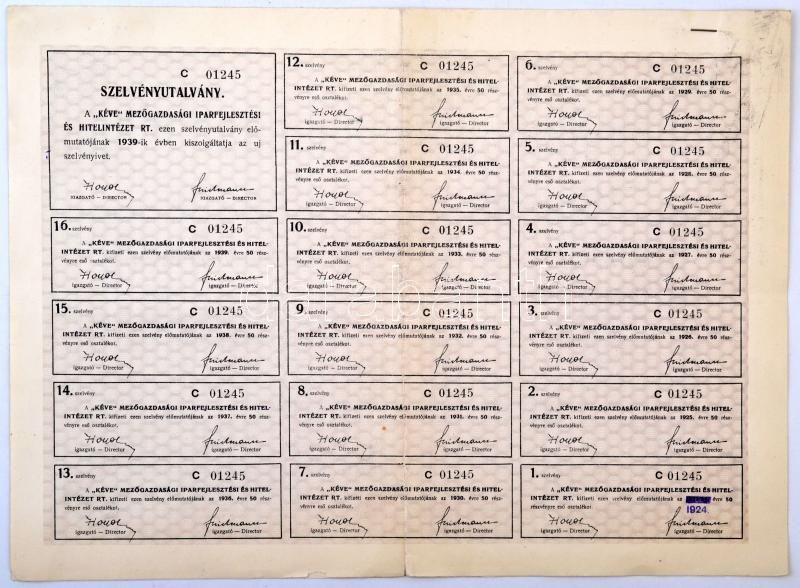 C 01245
SZELVÉNYUTALVÁNY.
A „KÉVE" MEZŐGAZDASÁGI IPARFEJLESZTÉSI
ÉS HITELINTÉZET RT. ezen szelvényutalvány elő-
mutatójának 1939-ik évben kiszolgáltatja az uj
szelvényivet.
IGAZGATÓ — DIRECTOR IGAZGATÓ — DIRECTOR
16. szelvény C 01245
A „KÉVE" MEZŐGAZDASÁGI IPARFEJLESZTÉSI ÉS HITEL-
INTÉZET RT. kifizeti ezen szelvény előmutatójának az 1939. évre 50 rész-
vényre eső osztalékot.
igazgató — Director igazgató — Director
15. szelvény C 01245
A „KÉVE" MEZŐGAZDASÁGI IPARFEJLESZTÉSI ÉS HITEL-
INTÉZET RT. kifizeti ezen szelvény előmutatójának az 1938. évre 50 rész-
vényre eső osztalékot.
igazgató — Director igazgató — Director
14. szelvény C 01245
A „KÉVE" MEZŐGAZDASÁGI IPARFEJLESZTÉSI ÉS HITEL-
INTÉZET RT. kifizeti ezen szelvény előmutatójának az 1937. évre 50 rész-
vényre eső osztalékot.
igazgató — Director igazgató — Director
13. szelvény C 01245
A „KÉVE" MEZŐGAZDASÁGI IPARFEJLESZTÉSI ÉS HITEL-
INTÉZET RT. kifizeti ezen szelvény előmutatójának az 1936. évre 50 rész-
vényre eső osztalékot.
igazgató — Director igazgató — Director
12. szelvény C 01245
A „KÉVE" MEZŐGAZDASÁGI IPARFEJLESZTÉSI ÉS HITEL-
INTÉZET RT. kifizeti ezen szelvény előmutatójának az 1935. évre 50 rész-
vényre eső osztalékot.
igazgató — Director igazgató — Director
11. szelvény C 01245
A „KÉVE" MEZŐGAZDASÁGI IPARFEJLESZTÉSI ÉS HITEL-
INTÉZET RT. kifizeti ezen szelvény előmutatójának az 1934. évre 50 rész-
vényre eső osztalékot.
igazgató — Director igazgató — Director
10. szelvény C 01245
A „KÉVE" MEZŐGAZDASÁGI IPARFEJLESZTÉSI ÉS HITEL-
INTÉZET RT. kifizeti ezen szelvény előmutatójának az 1933. évre 50 rész-
vényre eső osztalékot.
igazgató — Director igazgató — Director
9. szelvény C 01245
A „KÉVE" MEZŐGAZDASÁGI IPARFEJLESZTÉSI ÉS HITEL-
INTÉZET RT. kifizeti ezen szelvény előmutatójának az 1932. évre 50 rész-
vényre eső osztalékot.
igazgató — Director igazgató — Director
8. szelvény C 01245
A „KÉVE" MEZŐGAZDASÁGI IPARFEJLESZTÉSI ÉS HITEL-
INTÉZET RT. kifizeti ezen szelvény előmutatójának az 1931. évre 50 rész-
vényre eső osztalékot.
igazgató — Director igazgató — Director
7. szelvény C 01245
A „KÉVE" MEZŐGAZDASÁGI IPARFEJLESZTÉSI ÉS HITEL-
INTÉZET RT. kifizeti ezen szelvény előmutatójának az 1930. évre 50 rész-
vényre eső osztalékot.
igazgató — Director igazgató — Director
6. szelvény C 01245
A „KÉVE" MEZŐGAZDASÁGI IPARFEJLESZTÉSI ÉS HITEL-
INTÉZET RT. kifizeti ezen szelvény előmutatójának az 1929. évre 50 rész-
vényre eső osztalékot.
igazgató — Director igazgató — Director
5. szelvény C 01245
A „KÉVE" MEZŐGAZDASÁGI IPARFEJLESZTÉSI ÉS HITEL-
INTÉZET RT. kifizeti ezen szelvény előmutatójának az 1928. évre 50 rész-
vényre eső osztalékot.
igazgató — Director igazgató — Director
4. szelvény C 01245
A „KÉVE" MEZŐGAZDASÁGI IPARFEJLESZTÉSI ÉS HITEL-
INTÉZET RT. kifizeti ezen szelvény előmutatójának az 1927. évre 50 rész-
vényre eső osztalékot.
igazgató — Director igazgató — Director
3. szelvény C 01245
A „KÉVE" MEZŐGAZDASÁGI IPARFEJLESZTÉSI ÉS HITEL-
INTÉZET RT. kifizeti ezen szelvény előmutatójának az 1926. évre 50 rész-
vényre eső osztalékot.
igazgató — Director igazgató — Director
2. szelvény C 01245
A „KÉVE" MEZŐGAZDASÁGI IPARFEJLESZTÉSI ÉS HITEL-
INTÉZET RT. kifizeti ezen szelvény előmutatójának az 1925. évre 50 rész-
vényre eső osztalékot.
igazgató — Director igazgató — Director
1. szelvény C 01245
A „KÉVE" MEZŐGAZDASÁGI IPARFEJLESZTÉSI ÉS HITEL-
INTÉZET RT. kifizeti ezen szelvény előmutatójának az évre 50
részvényre eső osztalékot. 1924.
igazgató — Director igazgató — Director